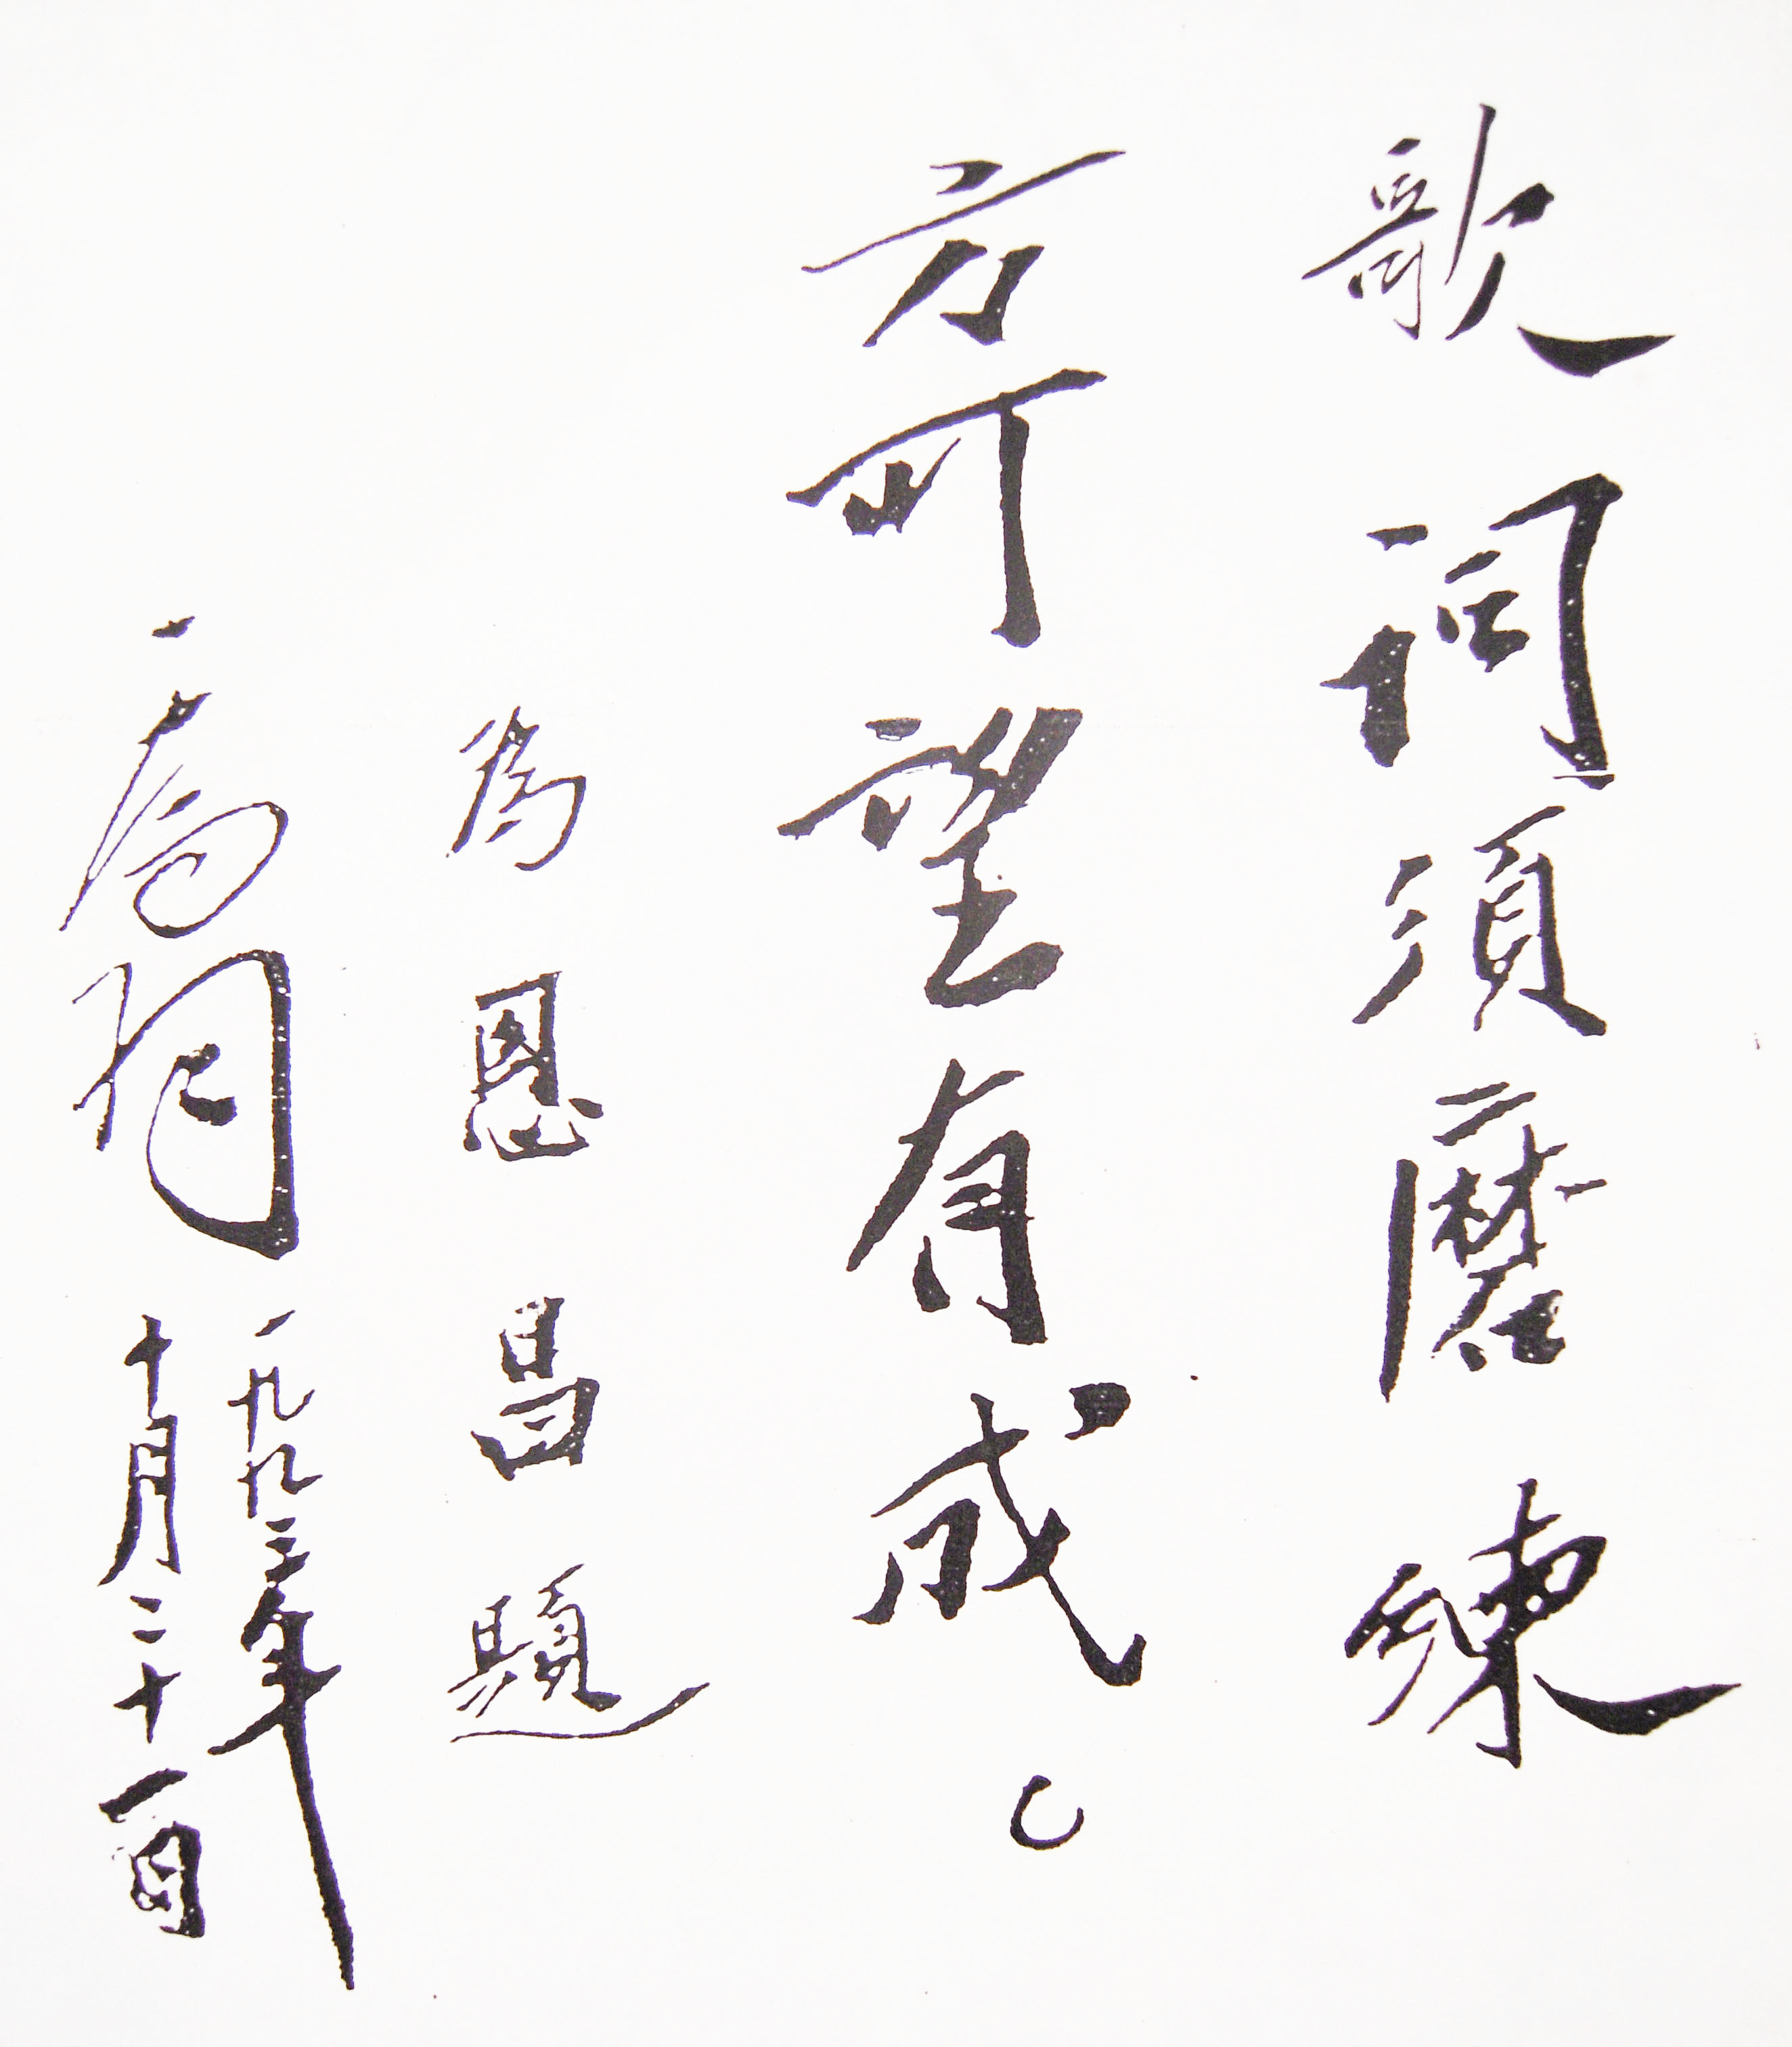 歌詞須磨練
方可望有成。
為恩昌題
一九九三年
十月二十一日